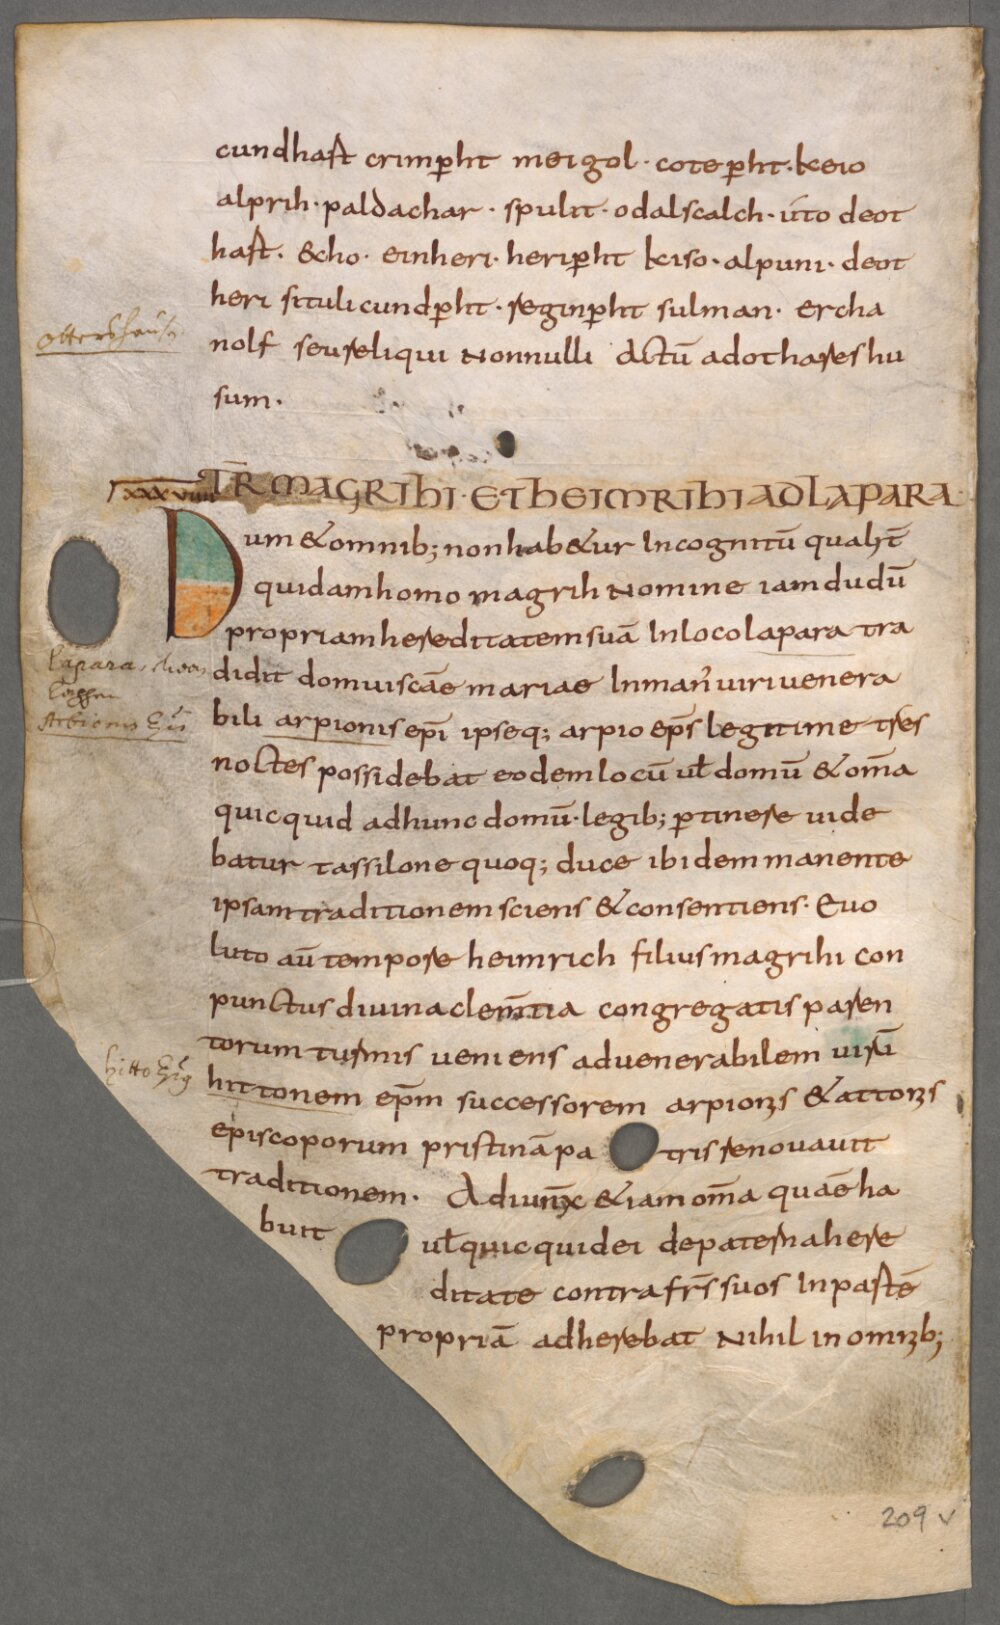 cundhaft crimp̲ht meigol · cotep̲ht · keio
alprih · paldachar · spulit · odalscalch · úto deot
haft · &cho · einheri · herip̲ht kiso · alpuni · deot
heri situli cundp̲ht · reginp̲ht sulman · ercha
ottershausen
nolf seu reliqui Nonnulli Actū ad othareshu
sum ·
xxxviiii TR̄ MAGRIHI · ET hEIMRIHI AD LAPARA ·
Dum & omnib; non hab&ur Incognitū qualit̄
quidam homo magrih Nomine iam dudū
propriam hereditatem suā In loco lapara tra
lapara
didit domui sc̄ae mariae In man' uiri uenera
bili arpionis ep̄i ipseq; arpio ep̄s legitime tres
Arbionis Ep̄i
noctes possidebat eodem locū ul̄ domū & om̄a
quicquid ad hunc domū · legib; p̲tinere uide
batur tassilone quoq; duce ibidem manente
ipsam traditionem sciens & consentiens · Euo
luto aū tempore heimrich filius magrihi con
punctus diuina clem̄tia congregatis paren
torum turmis ueniens ad uenerabilem uirū
hitto Ep̄s
hittonem ep̄m successorem arpionis & attonis
episcoporum pristinā patris renouauit
traditionem · Adiunx̄ & iam om̄a quāe ha
buit ul̄ quicquid ei de paterna here
ditate contra fr̄s suos In partē
propriā adherebat Nihil in omnib;
209 v